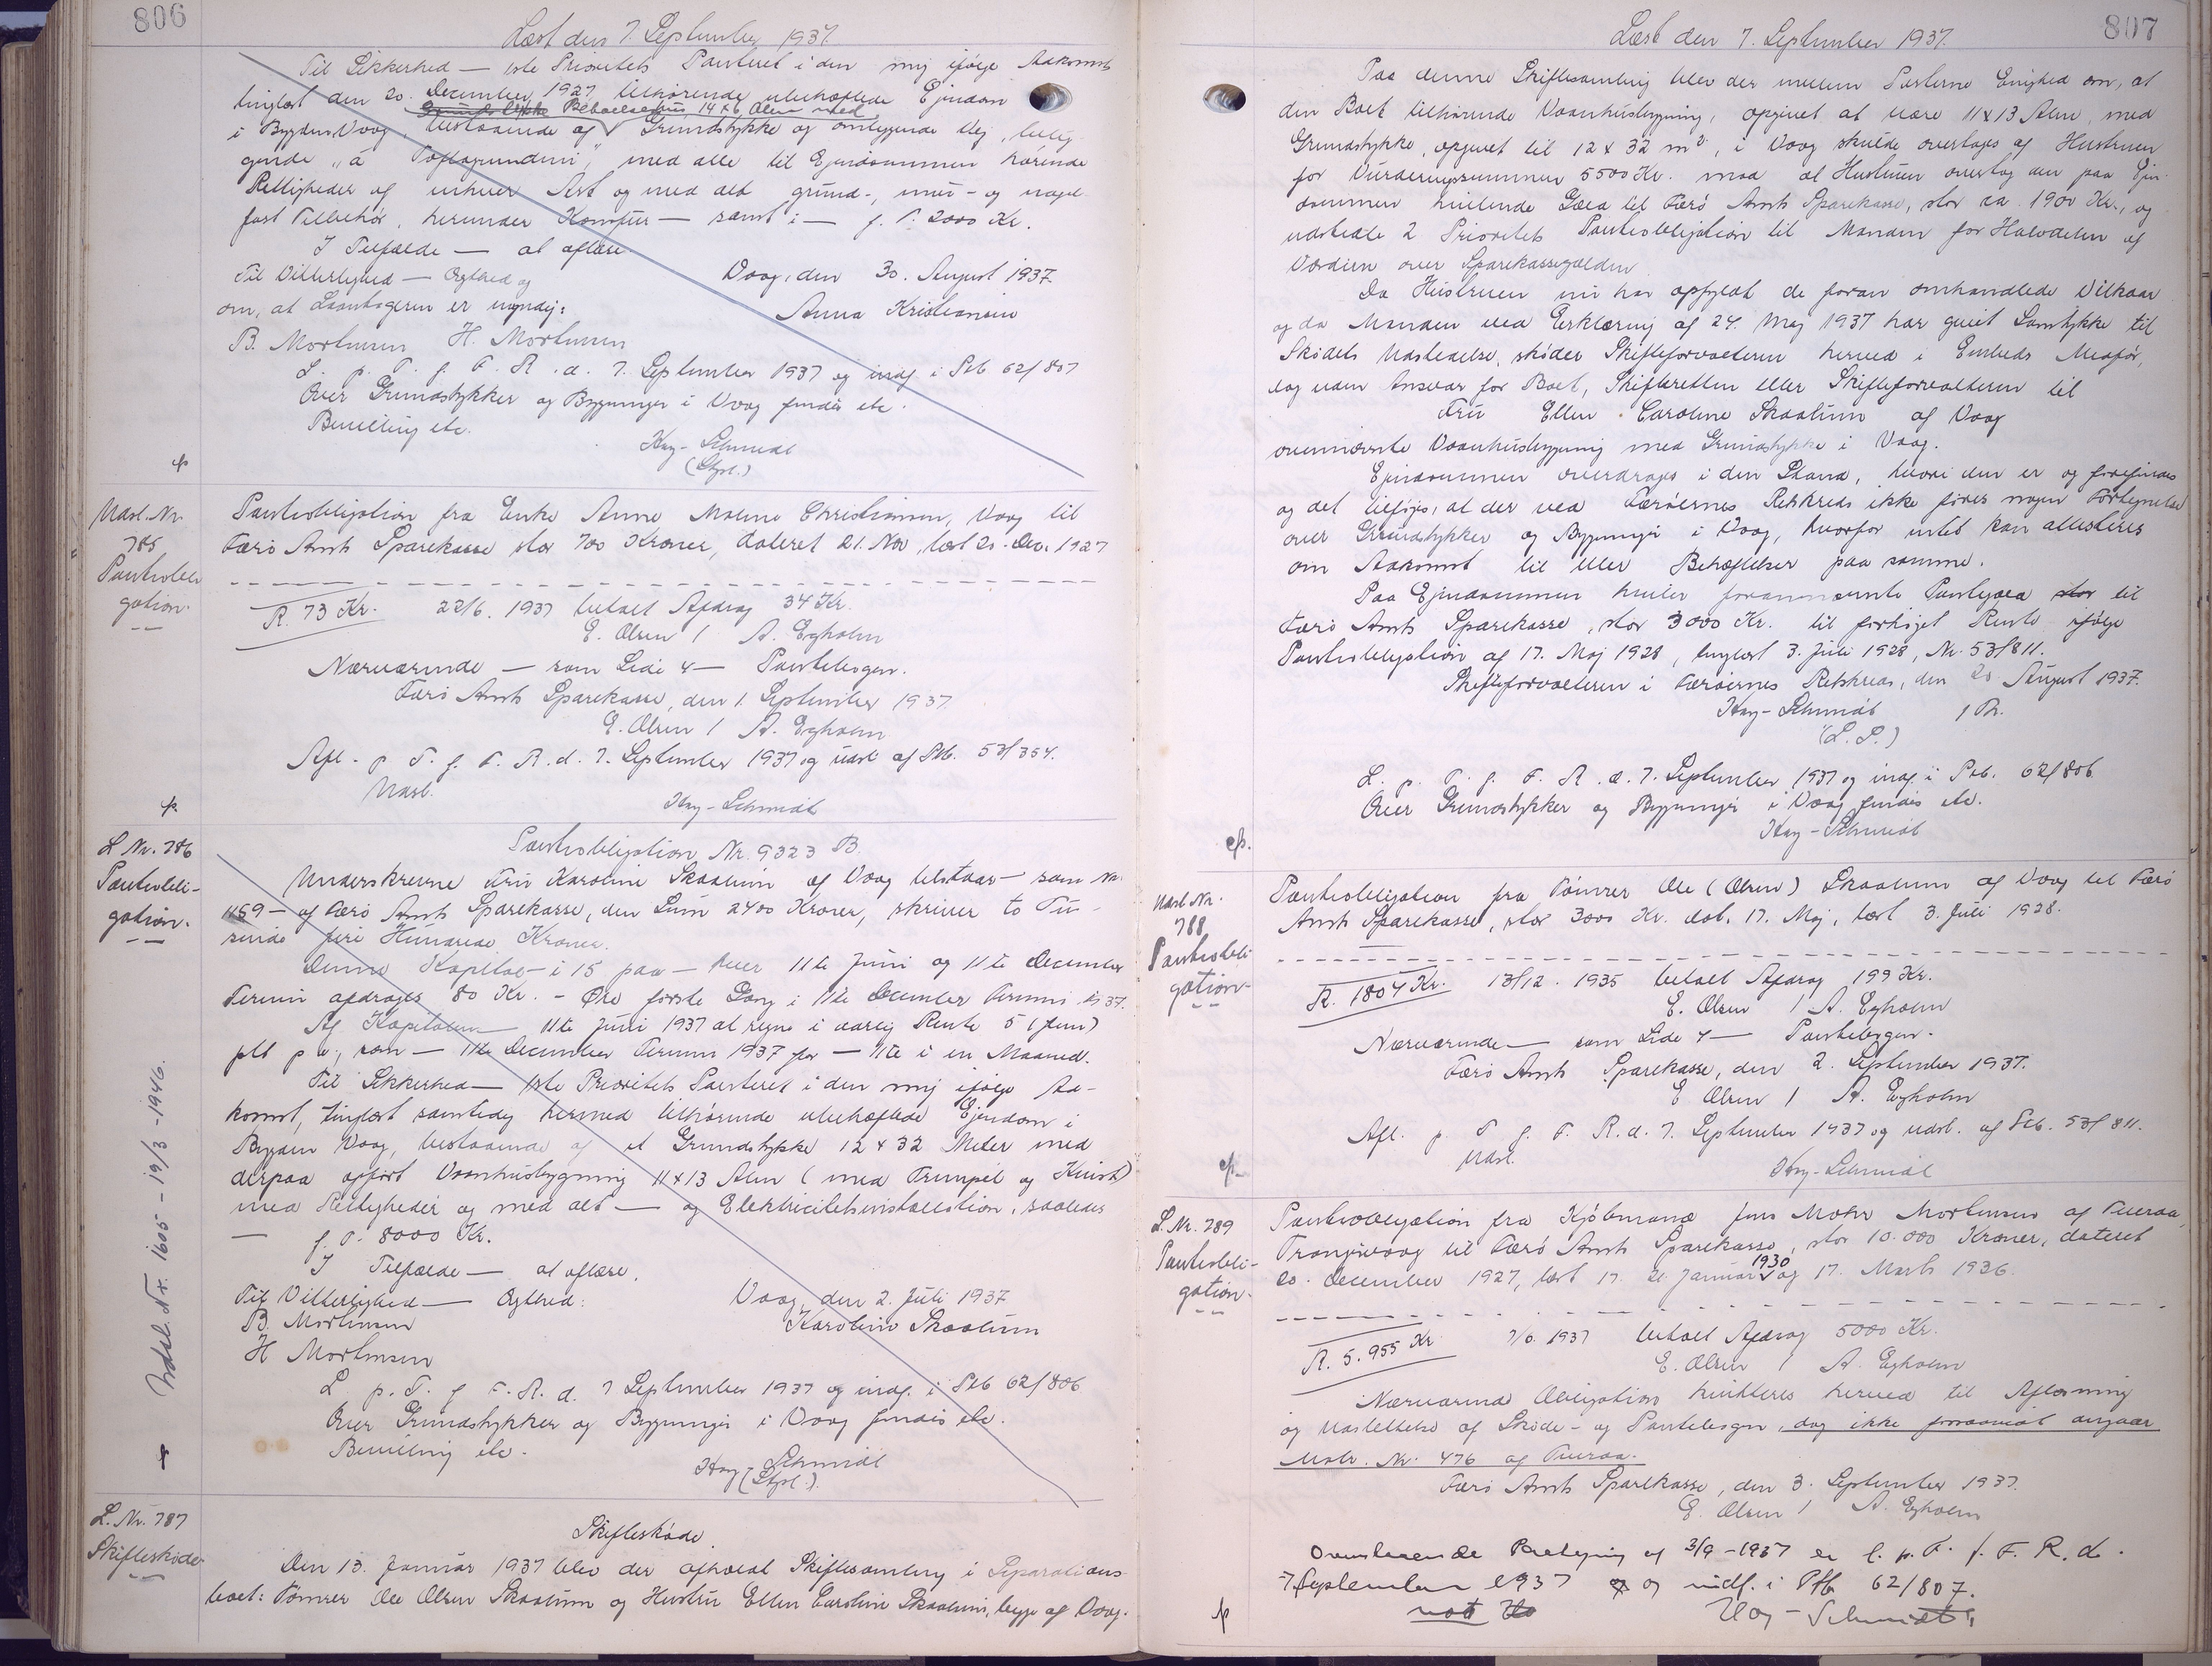 806
Læst den 7. September 1937.
Til Sikkerhed — 1ste Prioritets Panteret i den mig ifølge Adkomst
tinglæst den 20. December 1927 tilhørende ubehæftede Ejendom
Beboelseshus 14 x 6 Alen med
i Bygden Vaag, bestaaende af Grundstykke og omliggende Vej, belig
gende "á Toftagrundini", med alle til Ejendommen hørende
Rettigheder af enhver Art og med alt grund-, mur- og nagel
fast Tilbehør, herunder Komfur — samt i — f. T. 2000 Kr.
I Tilfælde — at aflæse.
Til Vitterlighed — Ægthed og
Vaag, den 30. August 1937.
om, at Laantageren er myndig:
Anna Kristiansen
B. Mortensen H. Mortensen
L. p. T. f. F. R. d. 7. September 1937 og indf. i Ptb 62/807
Over Grundstykker og Bygninger i Vaag findes etc.
Bevilling etc.
Hay-Schmidt
(Stpl.)
Udsl. Nr.
785
Pantobli
gation.
Pantobligation fra Enke Anne Malene Christiansen, Vaag til
Færø Amts Sparekasse stor 700 Kroner, dateret 21. Nov., læst 20. Dec. 1927
R. 73 Kr. 22/6. 1937 betalt Afdrag 34 Kr.
E. Olsen / A. Egholm
Nærværende — som Side 4 — Pantebogen.
Færø Amts Sparekasse, den 1. September 1937
E. Olsen / A. Egholm
Afl. p. T. f. F. R. d. 7. September 1937 og udsl. af Ptb. 53/354.
Udsl.
Hay-Schmidt
L. Nr. 786
Pantobli-
gation.
Pantobligation Nr. 9323 B.
Underskrevne Fru Karoline Skaalum af Vaag tilstaar — som Nr.
1159 — af Færø Amts Sparekasse, den Sum 2400 Kroner, skriver to Tu-
sinde fire Hundrede Kroner.
Denne Kapital — i 15 paa — hver 11te Juni og 11te December
Termin afdrages 80 Kr. — Øre første Gang i 11te December Termin 1937.
Af Kapitalen — 11te Juni 1937 at regne i aarlig Rente 5 (fem)
pCt p. a., som — 11te December Termin 1937 for — 11te i en Maaned.
Til Sikkerhed — 1ste Prioritets Panteret i den mig ifølge Ad-
komst, tinglæst samtidig hermed tilhørende ubehæftede Ejendom i
Bygden Vaag, bestaaende af et Grundstykke 12 x 32 Meter med
derpaa opført Vaanhusbygning 11 x 13 Alen (med Trumpet og Kvist)
med Rettigheder og med alt — og Elektricitetsinstallation, saaledes
— f. T. 8000 Kr.
I Tilfælde — at aflæse.
Til Vitterlighed — Ægthed:
Vaag, den 2. Juli 1937
B. Mortensen
Karoline Skaalum
H Mortensen
L. p. T. f. F. R. d. 7 September 1937 og indf. i Ptb 62/806
Over Grundstykker og Bygninger i Vaag findes etc.
Bevilling etc.
Hay-Schmidt
(Stpl.)
Udsl. Nr. 1605 - 19/3 - 1946.
L. Nr. 787
Skifteskøde
Skifteskøde.
Den 13. Januar 1937 blev der afholdt Skiftesamling i Separations
boet: Tømrer Ole Olsen Skaalum og Hustru Ellen Caroline Skaalum, begge af Vaag.
807
Læst den 7. September 1937.
Paa denne Skiftesamling blev der mellem Parterne Enighed om, at
den Boet tilhørende Vaanhusbygning, opgivet at være 11 x 13 Alen, med
Grundstykke, opgivet til 12 x 32 m², i Vaag skulde overtages af Hustruen
for Vurderingssummen 5500 Kr. mod at Hustruen overtog den paa Ejen-
dommen hvilende Gæld til Færø Amts Sparekasse, stor ca. 1900 Kr., og
udstedte 2. Prioritets Pantobligation til Manden for Halvdelen af
Værdien over Sparekassegælden
Da Hustruen nu har opfyldt de foran omhandlede Vilkaar
og da Manden ved Erklæring af 24. Maj 1937 har givet Samtykke til
Skødets Udstedelse, skøder Skifteforvalteren herved i Embeds Medfør,
dog uden Ansvar for Boet, Skifteretten eller Skifteforvalteren til
Fru Ellen Caroline Skaalum af Vaag
ovennævnte Vaanhusbygning med Grundstykke i Vaag.
Ejendommen overdrages i den Stand, hvori den er og forefindes
og det tilføjes, at der ved Færøernes Retskreds ikke føres nogen Fortegnelse
over Grundstykker og Bygninger i Vaag, hvorfor intet kan attesteres
om Adkomst til eller Behæftelser paa samme.
Paa Ejendommen hviler forannævnte Pantegæld stor til
Færø Amts Sparekasse, stor 3000 Kr. til forhøjet Rente ifølge
Pantobligation af 17. Maj 1928, tinglæst 3. Juli 1928, Nr. 53/811.
Skifteforvalteren i Færøernes Retskreds, den 20 August 1937.
Hay-Schmidt / Ph.
(L. S.)
L. p. T. f. F. R. d. 7. September 1937 og indf. i Ptb. 62/806
Over Grundstykker og Bygninger i Vaag findes etc.
Hay-Schmidt
Udsl. Nr.
788
Pantobli-
gation.
Pantobligation fra Tømrer Ole (Olsen) Skaalum af Vaag til Færø
Amts Sparekasse, stor 3000 Kr. dat. 17. Maj, læst 3. Juli 1928.
R. 1804 Kr. 13/12. 1935 betalt Afdrag 199 Kr.
E. Olsen / A. Egholm
Nærværende — som Side 4 — Pantebogen.
Færø Amts Sparekasse, den 2. September 1937.
E Olsen / A. Egholm
Afl. p. T. f. F. R. d. 7. September 1937 og udsl. af Ptb. 53/811.
Udsl.
Hay-Schmidt
L. Nr. 789
Pantobli-
gation.
Pantobligation fra Kjøbmand Jens Mohr Mortensen af Tveraa,
Trangisvaag til Færø Amts Sparekasse, stor 10.000 Kroner, dateret
1930
20. December 1927, læst 17. 21. Januar og 17. Marts 1936.
R. 5.955 Kr 7/6. 1937 betalt Afdrag 5000 Kr.
E. Olsen / A. Egholm
Nærværende Obligation kvitteres herved til Aflæsning
og Udslettelse af Skøde- og Pantebogen, dog ikke forsaavidt angaar
Matr. Nr. 476 af Tveraa.
Færø Amts Sparekasse, den 3. September 1937.
E. Olsen / A. Egholm
Ovenstaaende Paategning af 3/9 - 1937 er l. p. T. f. F. R. d.
7 September 1937 og indf. i Ptb 62/807.
Hay-Schmidt